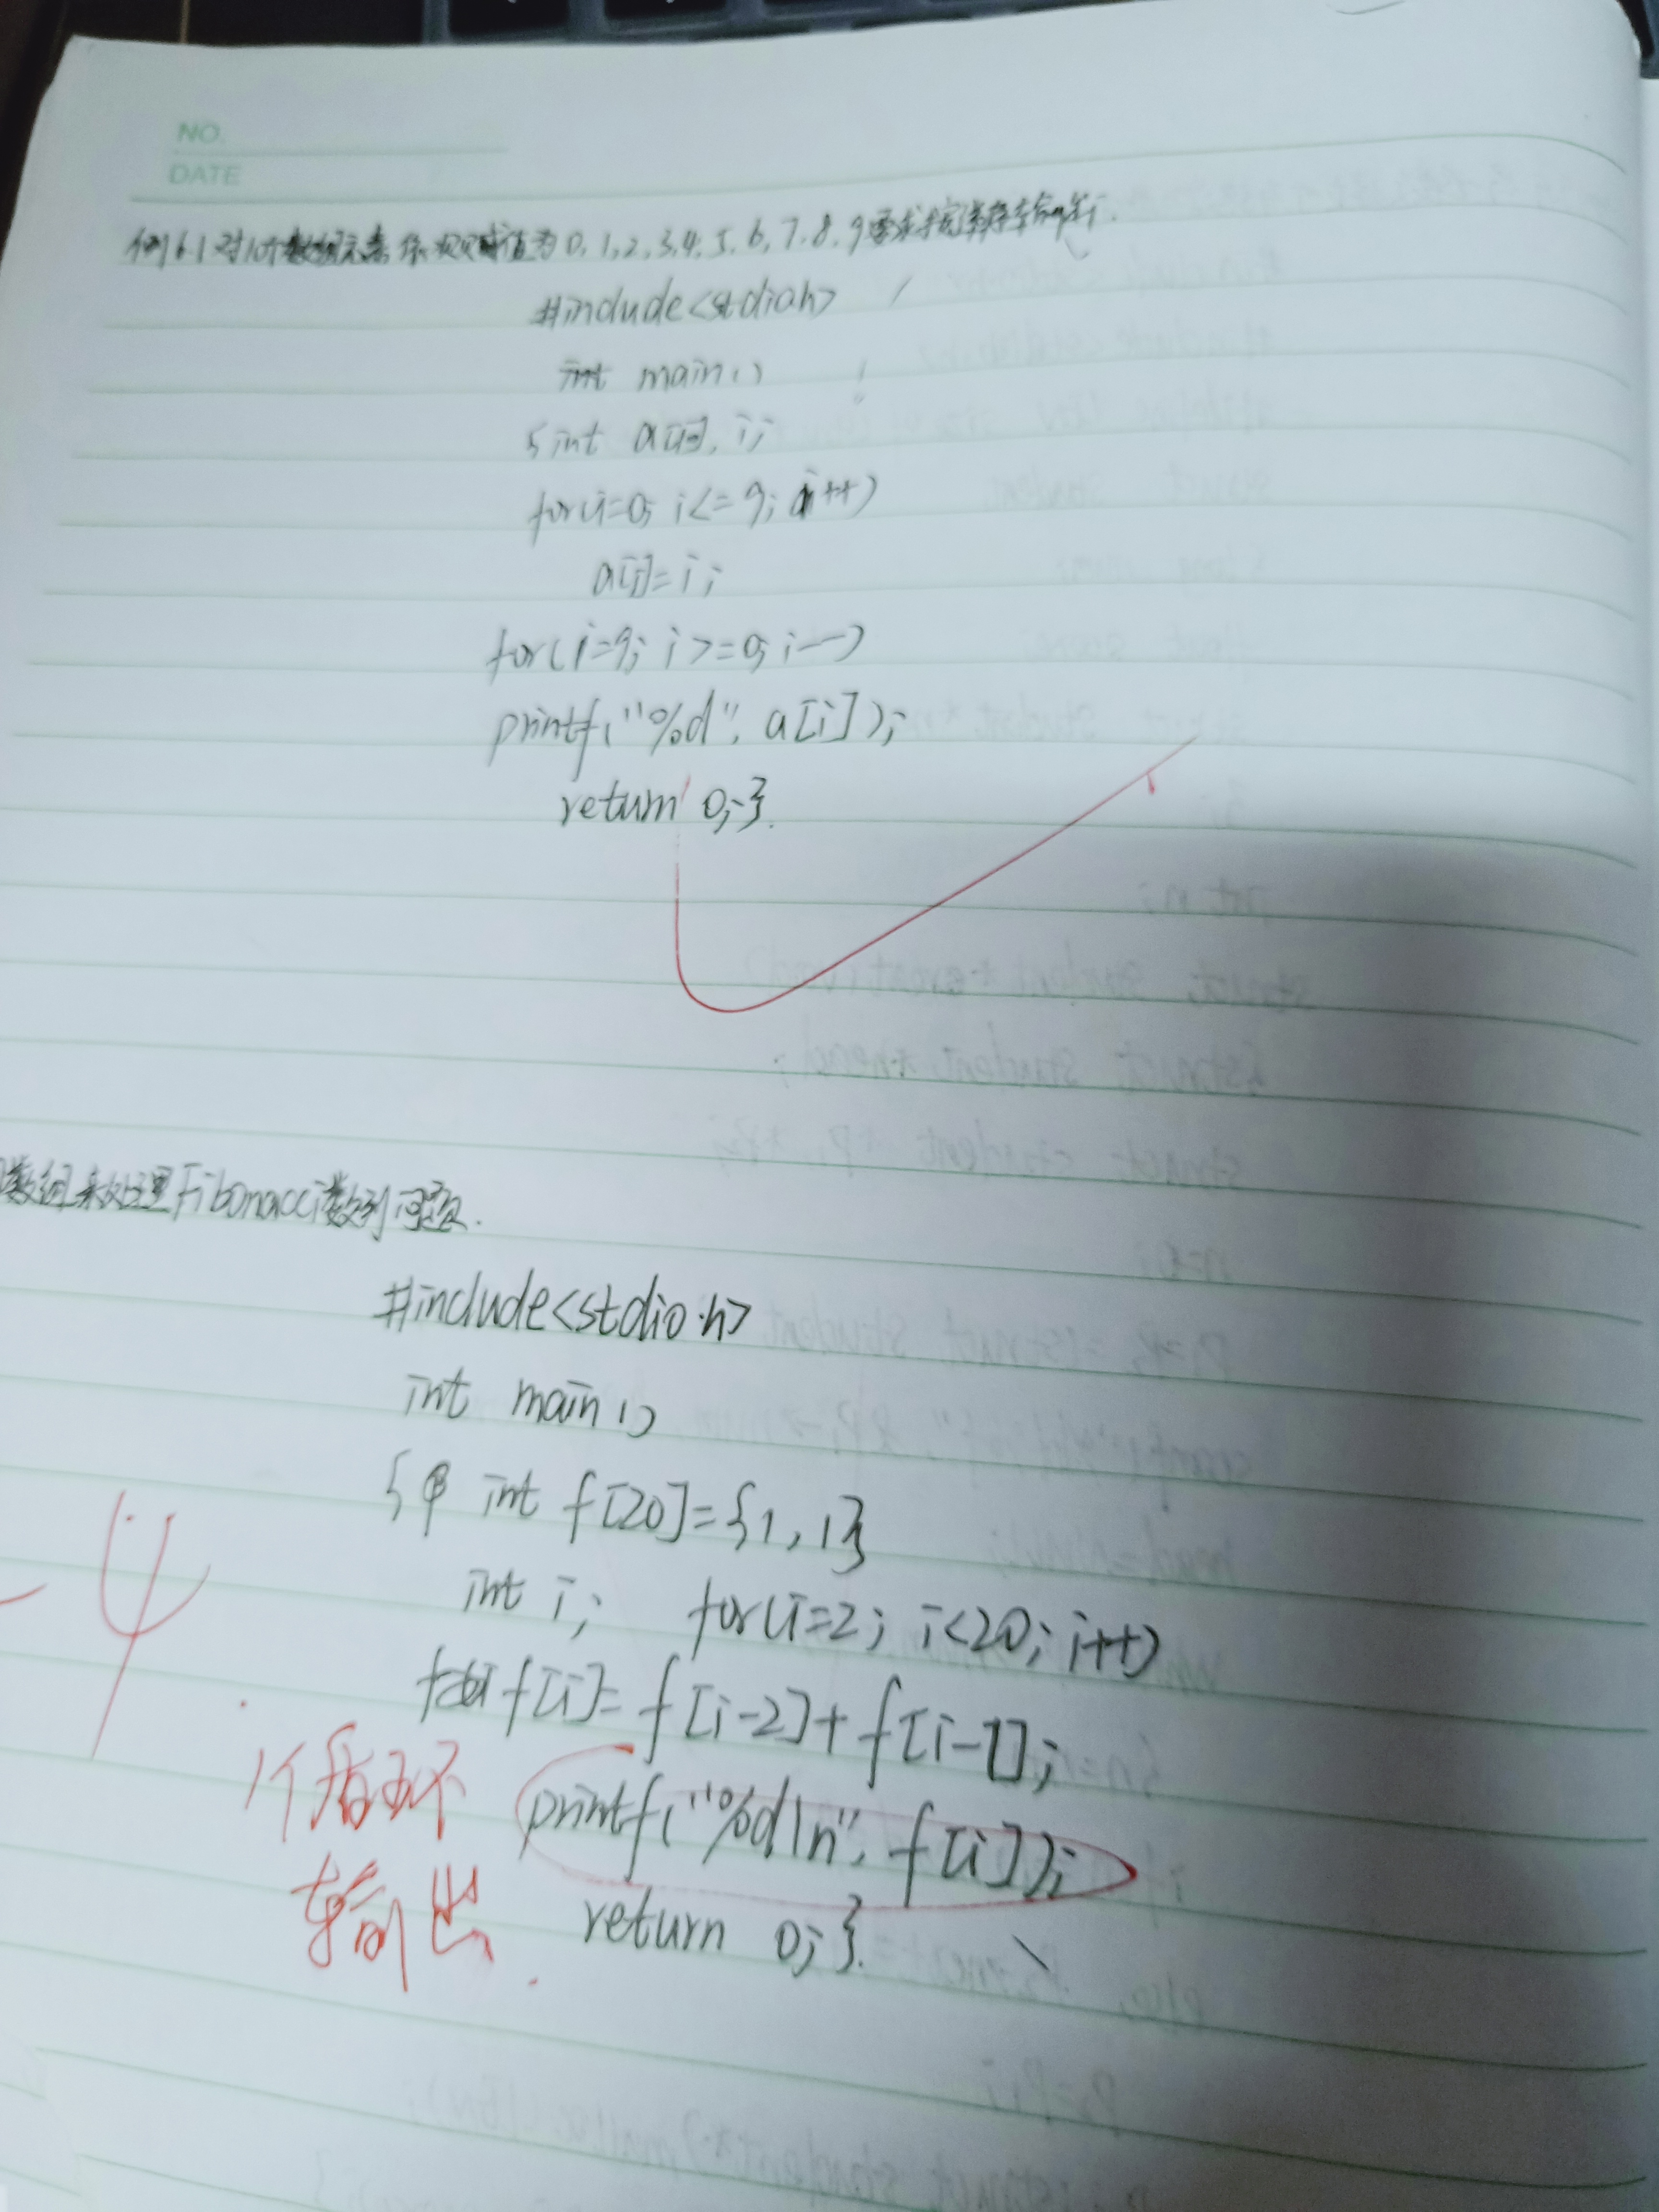 NO.
DATE
例6.1对10个数组元素依次赋值为0,1,2,3,4,5,6,7,8,9要求按逆序输出.
#include<stdio.h>
int main()
{int a[10], i;
for(i=0; i<=9; i++)
a[i]=i;
for(i=9; i>=0; i--)
printf("%d", a[i]);
return 0;}
数组来处理Fibonacci数列问题.
#include<stdio.h>
int main()
{ int f[20]={1,1}
int i; for(i=2; i<20; i++)
f[i]=f[i-2]+f[i-1];
printf("%d\n", f[i]);
return 0;}
1个循环
输出.